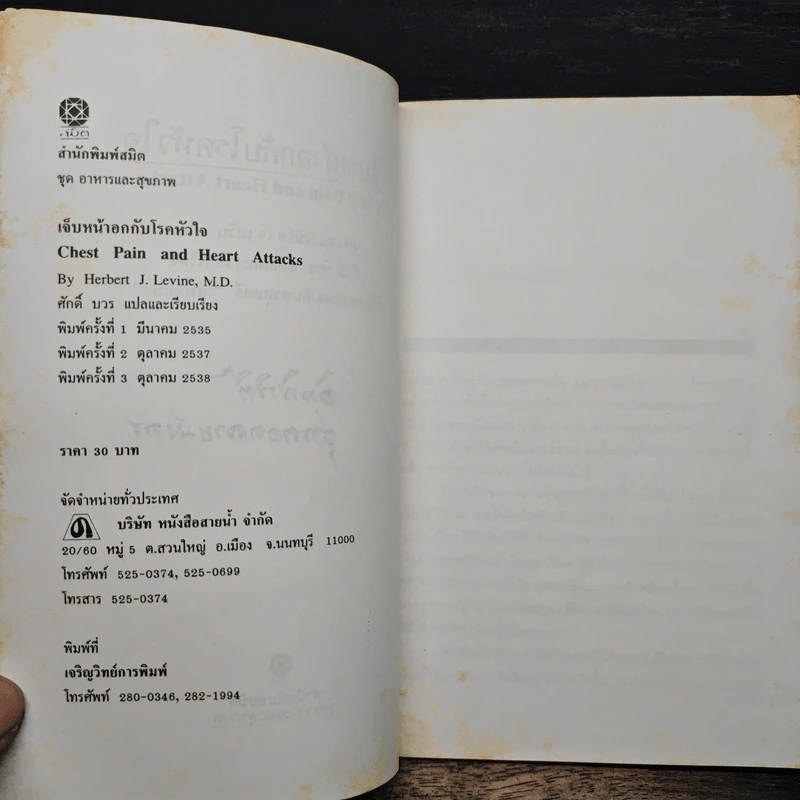 สมิต
สำนักพิมพ์สมิต
ชุด อาหารและสุขภาพ
เจ็บหน้าอกกับโรคหัวใจ
Chest Pain and Heart Attacks
By Herbert J. Levine, M.D.
ศักดิ์ บวร แปลและเรียบเรียง
พิมพ์ครั้งที่ 1 มีนาคม 2535
พิมพ์ครั้งที่ 2 ตุลาคม 2537
พิมพ์ครั้งที่ 3 ตุลาคม 2538
ราคา 30 บาท
จัดจำหน่ายทั่วประเทศ
บริษัท หนังสือสายน้ำ จำกัด
20/60 หมู่ 5 ต.สวนใหญ่ อ.เมือง จ.นนทบุรี 11000
โทรศัพท์ 525-0374, 525-0699
โทรสาร 525-0374
พิมพ์ที่
เจริญวิทย์การพิมพ์
โทรศัพท์ 280-0346, 282-1994